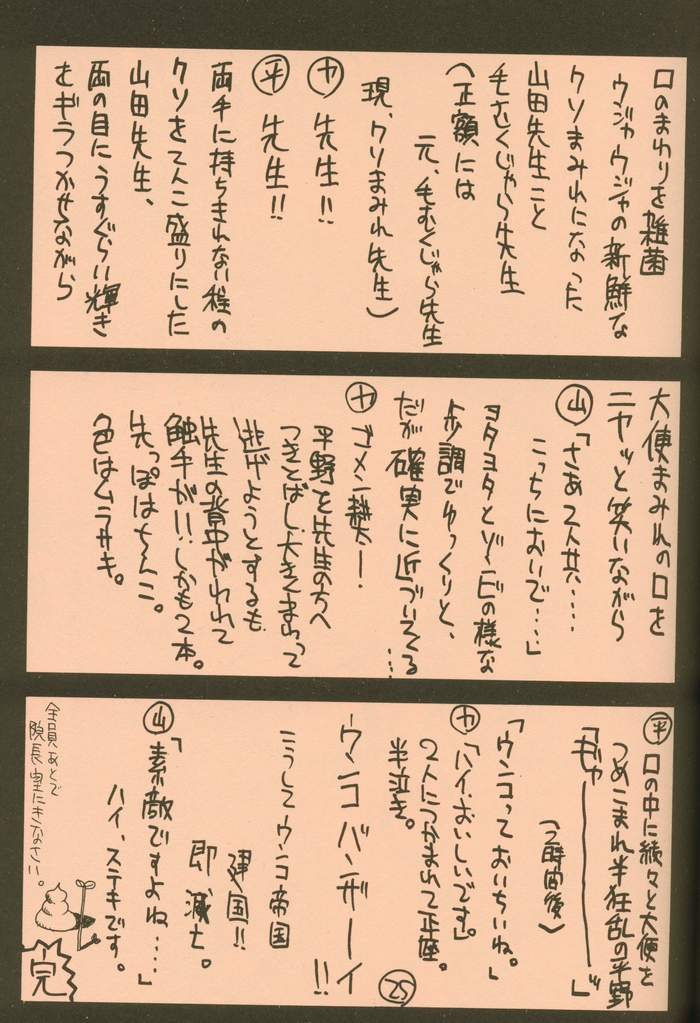 口のまわりを雑菌
ウジャウジャの新鮮な
クソまみれになった
山田先生こと
毛むくじゃら先生
(正額には
元、毛むくじゃら先生
現、クソまみれ先生)
カ 先生!!
平 先生!!
両手に持ちきれない程の
クソをてんこ盛りにした
山田先生、
両の目にうすぐらい輝き
をギラつかせながら
大便まみれの口を
ニヤッと笑いながら
山「さあ2人共‥‥
こっちにおいで‥‥」
ヨタヨタとゾンビの様な
歩調でゆっくりと、
だが確実に近づいてくる…
カ ゴメン
平野を先生の方へ
つきとばし大きくまわって
逃げようとするも
先生の背中がわれて
触手が!!しかも2本。
先っぽはちんこ。
色はムラサキ。
平 口の中に続々と大便を
つめこまれ半狂乱の平野
「ギャーーーー」
(2時間後)
「ウンコっておいちいね。」
カ「ハイ、おいしいです」。
2人につかまれて正座。
半泣き。
ウンコバンザーイ!!
こうしてウンコ帝国
建国!!
即滅亡。
山「素敵ですよね‥‥」
ハイ、ステキです。
全員あとで
院長室にきなさい。
完
25